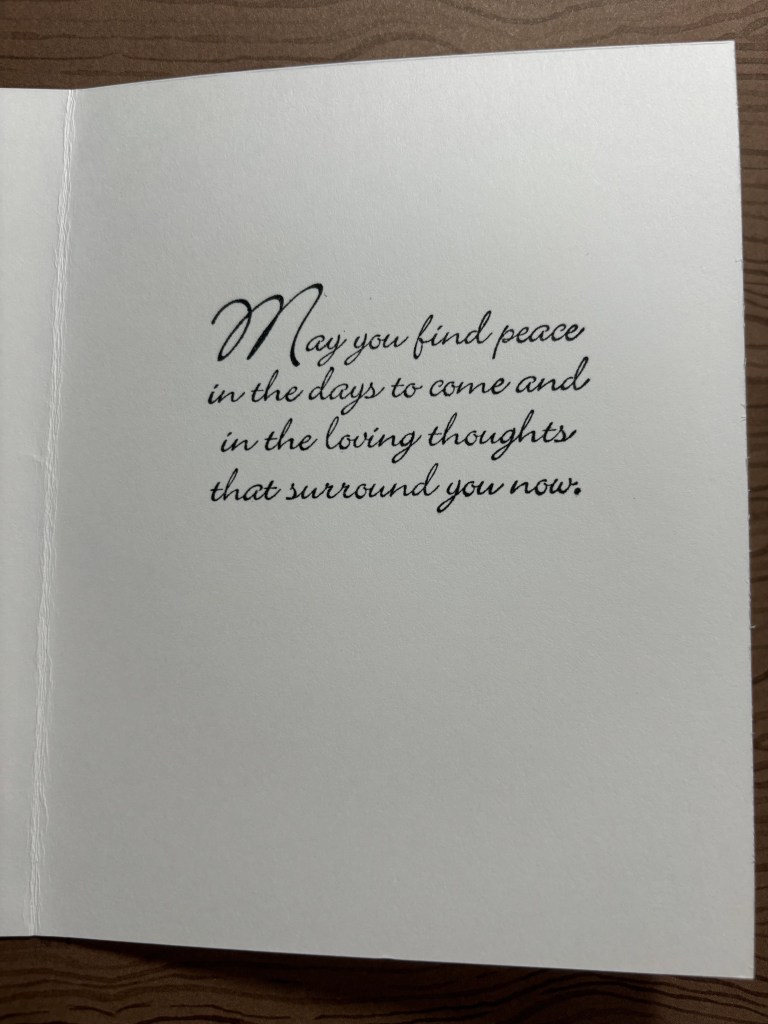 May you find peace
in the days to come and
in the loving thoughts
that surround you now.